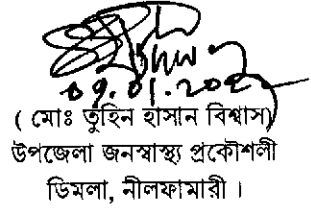 ( মোঃ তুহিন হাসান বিশ্বাস)
উপজেলা জনস্বাস্থ্য প্রকৌশলী
ডিমলা, নীলফামারী ।